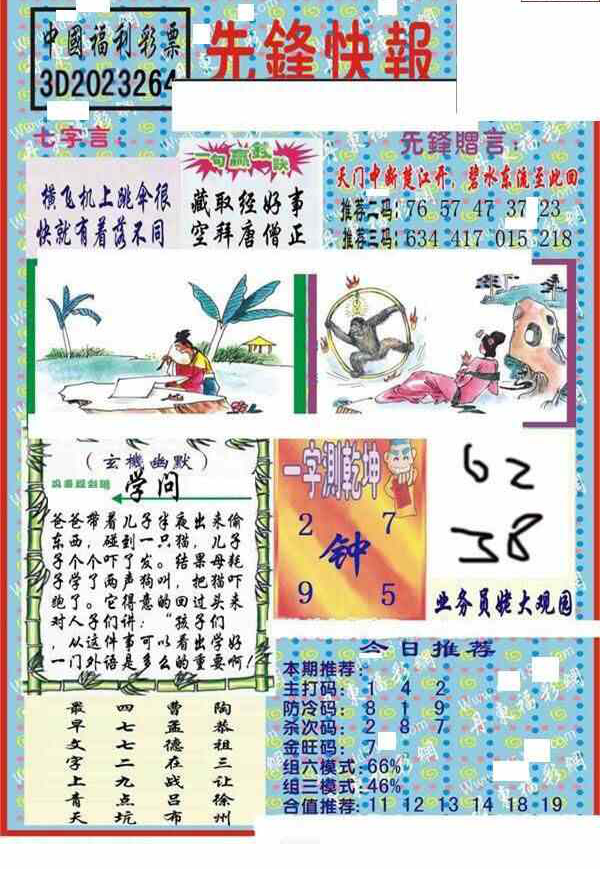 中國福利彩票
3D2023264
先鋒快報
七字言:
横飞机上跳伞很
快就有着落不同
一句赢彩默
藏取经好事
空拜唐僧正
先鋒贈言:
天门中断楚江开，碧水东流至此回
推荐二码:76 57 47 37 23
推荐三码:634 417 015 218
(玄機幽默)
学问
爸爸带着儿子半夜出来偷
东西，碰到一只猫，儿子
子个个吓了发。结果母耗
子学了两声狗叫，把猫吓
跑了。它得意的回过头来
对人子们讲："孩子们
，从这件事可以看出学好
一门外语是多么的重要啊!
一字测乾坤
2 7
钟
9 5
62
38
业务员姥大观园
今日推荐
本期推荐:
主打码: 1 4 2
防冷码: 8 1 9
杀次码: 2 8 7
金旺码: 7
组六模式:66%
组三模式:46%
合值推荐:11 12 13 14 18 19
陶恭祖三让徐州
曹孟德在战吕布
四七七二九点坑
最早文字上青天